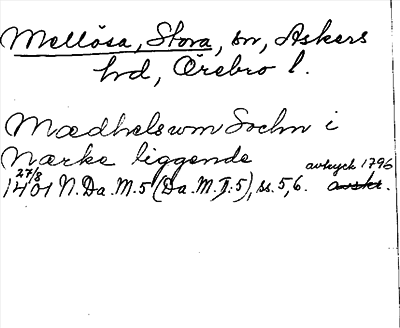 Mellösa, Stora, sn, Askers
hd, Örebro l.
Mædhelswm Sochn i
Nærke liggende
avtryck 1796
27/8
1401 N. Da. M. 5 (Da. M. II. 5), ss. 5, 6. avskr.